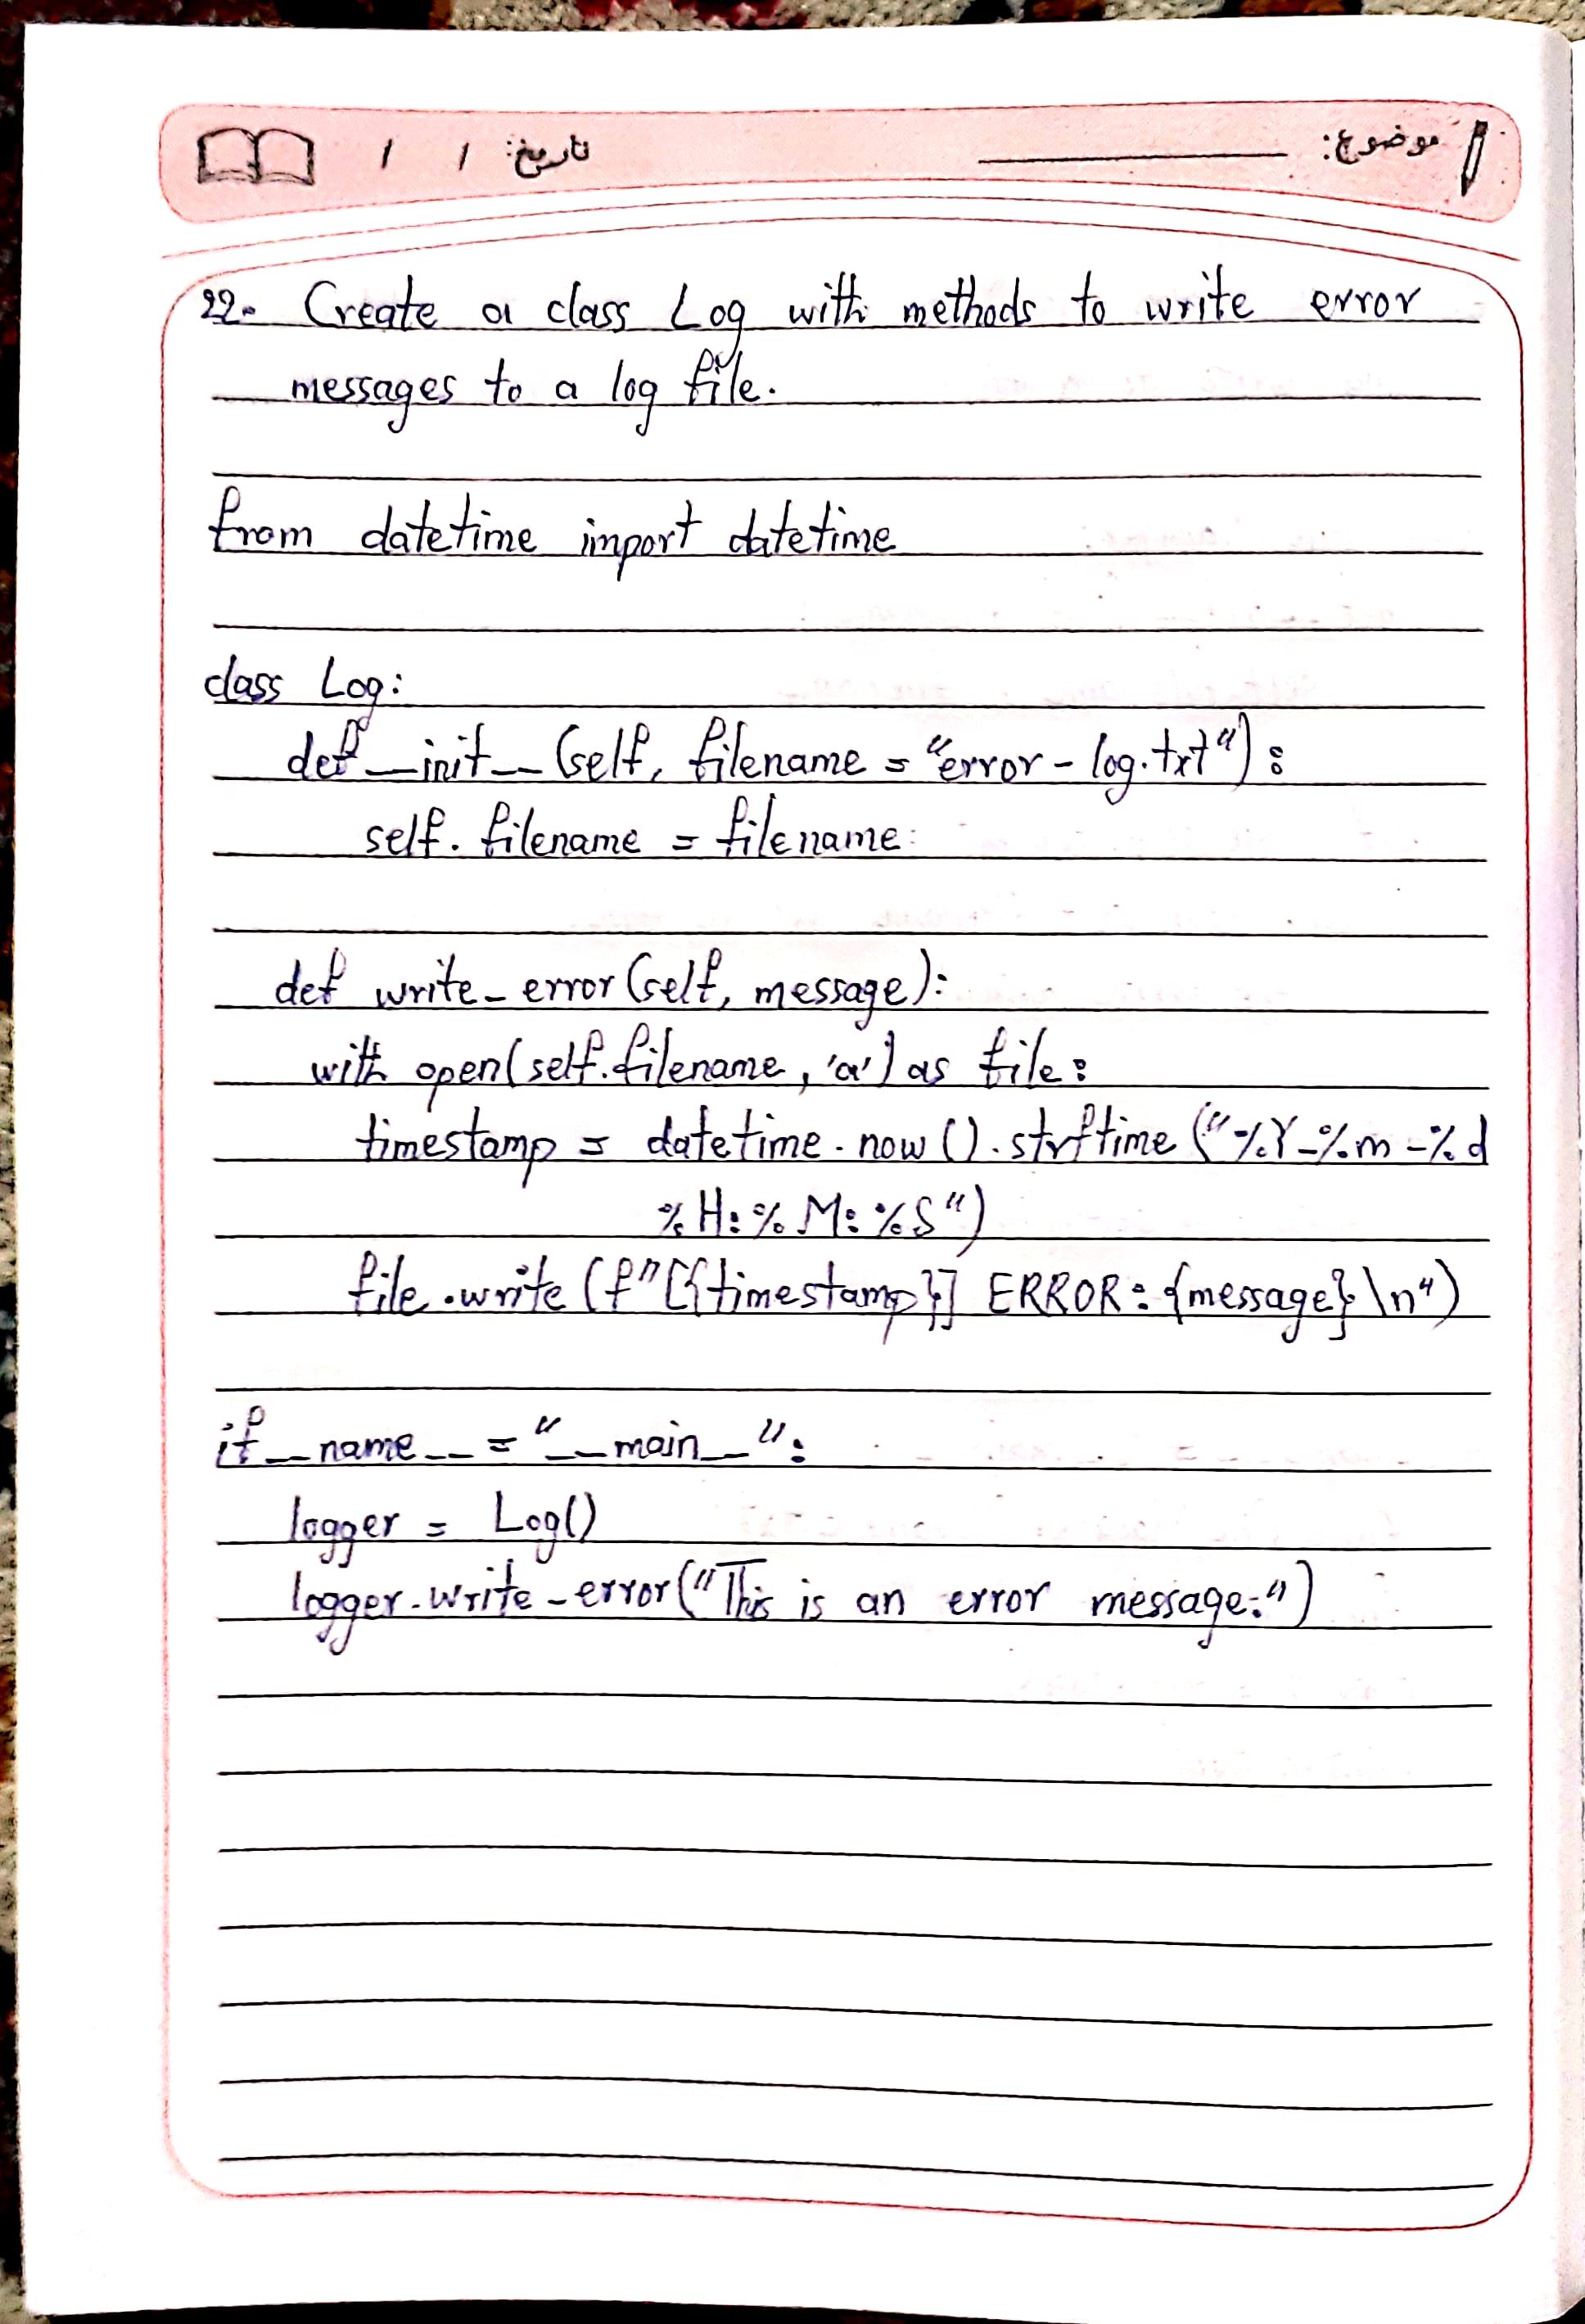 موضوع:
تاريخ: / /
22. Create a class Log with methods to write error
messages to a log file.
from datetime import datetime
class Log:
def __init__(self, filename = "error-log.txt"):
self.filename = filename
def write_error(self, message):
with open(self.filename, 'a') as file:
timestamp = datetime.now().strftime("%Y-%m-%d
%H:%M:%S")
file.write(f"[{timestamp}] ERROR: {message}\n")
if __name__ = "__main__":
logger = Log()
logger.write_error("This is an error message.")